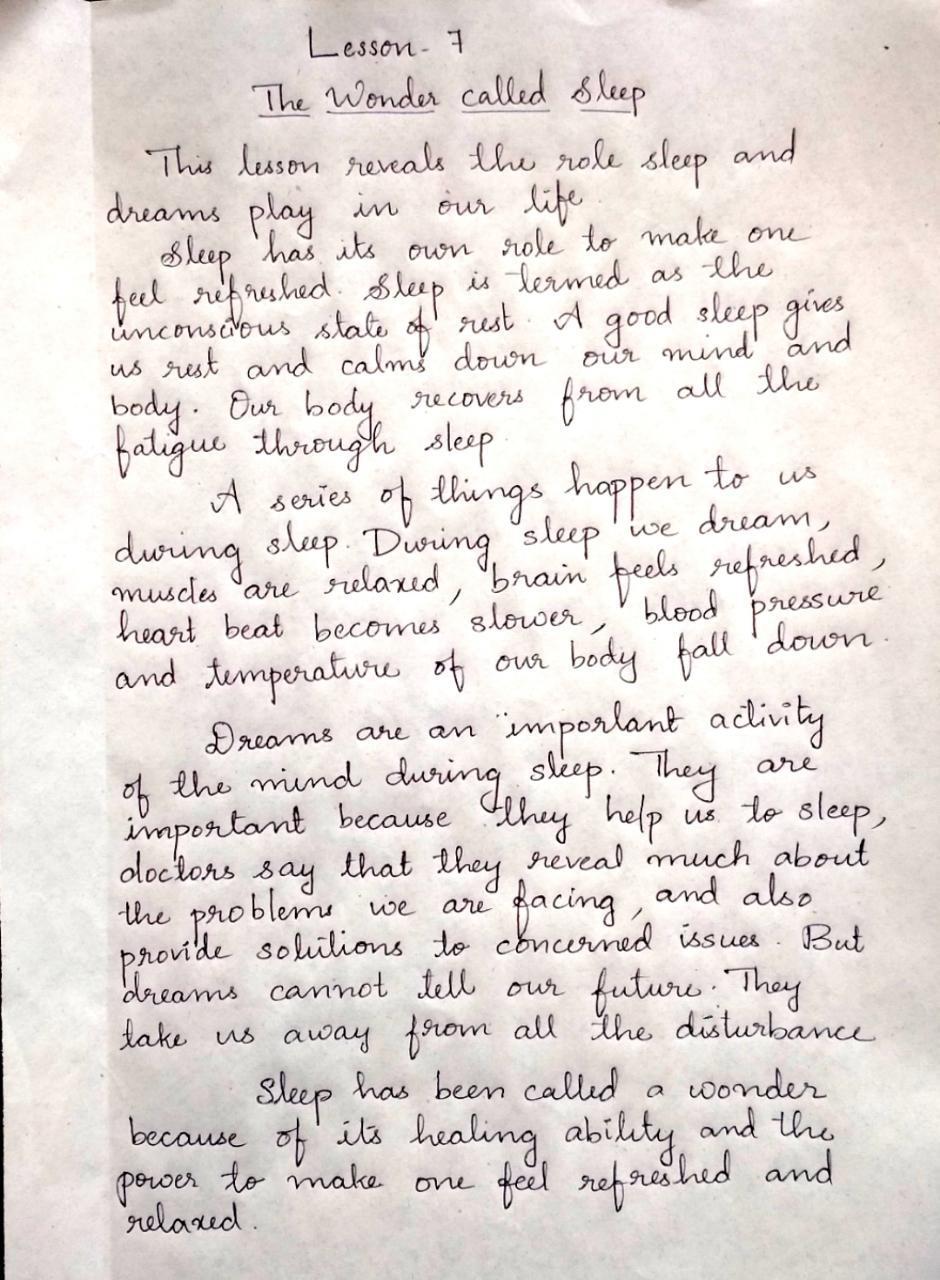 Lesson - 7
The Wonder called Sleep
This lesson reveals the role sleep and
dreams play in our life.
Sleep has its own role to make one
feel refreshed. Sleep is termed as the
unconscious state of rest. A good sleep gives
us rest and calms down our mind and
body. Our body recovers from all the
fatigue through sleep.
A series of things happen to us
during sleep. During sleep we dream,
muscles are relaxed, brain feels refreshed,
heart beat becomes slower, blood pressure
and temperature of our body fall down.
Dreams are an important activity
of the mind during sleep. They are
important because they help us to sleep,
doctors say that they reveal much about
the problems we are facing, and also
provide solutions to concerned issues. But
dreams cannot tell our future. They
take us away from all the disturbance
Sleep has been called a wonder
because of its healing ability and the
power to make one feel refreshed and
relaxed.